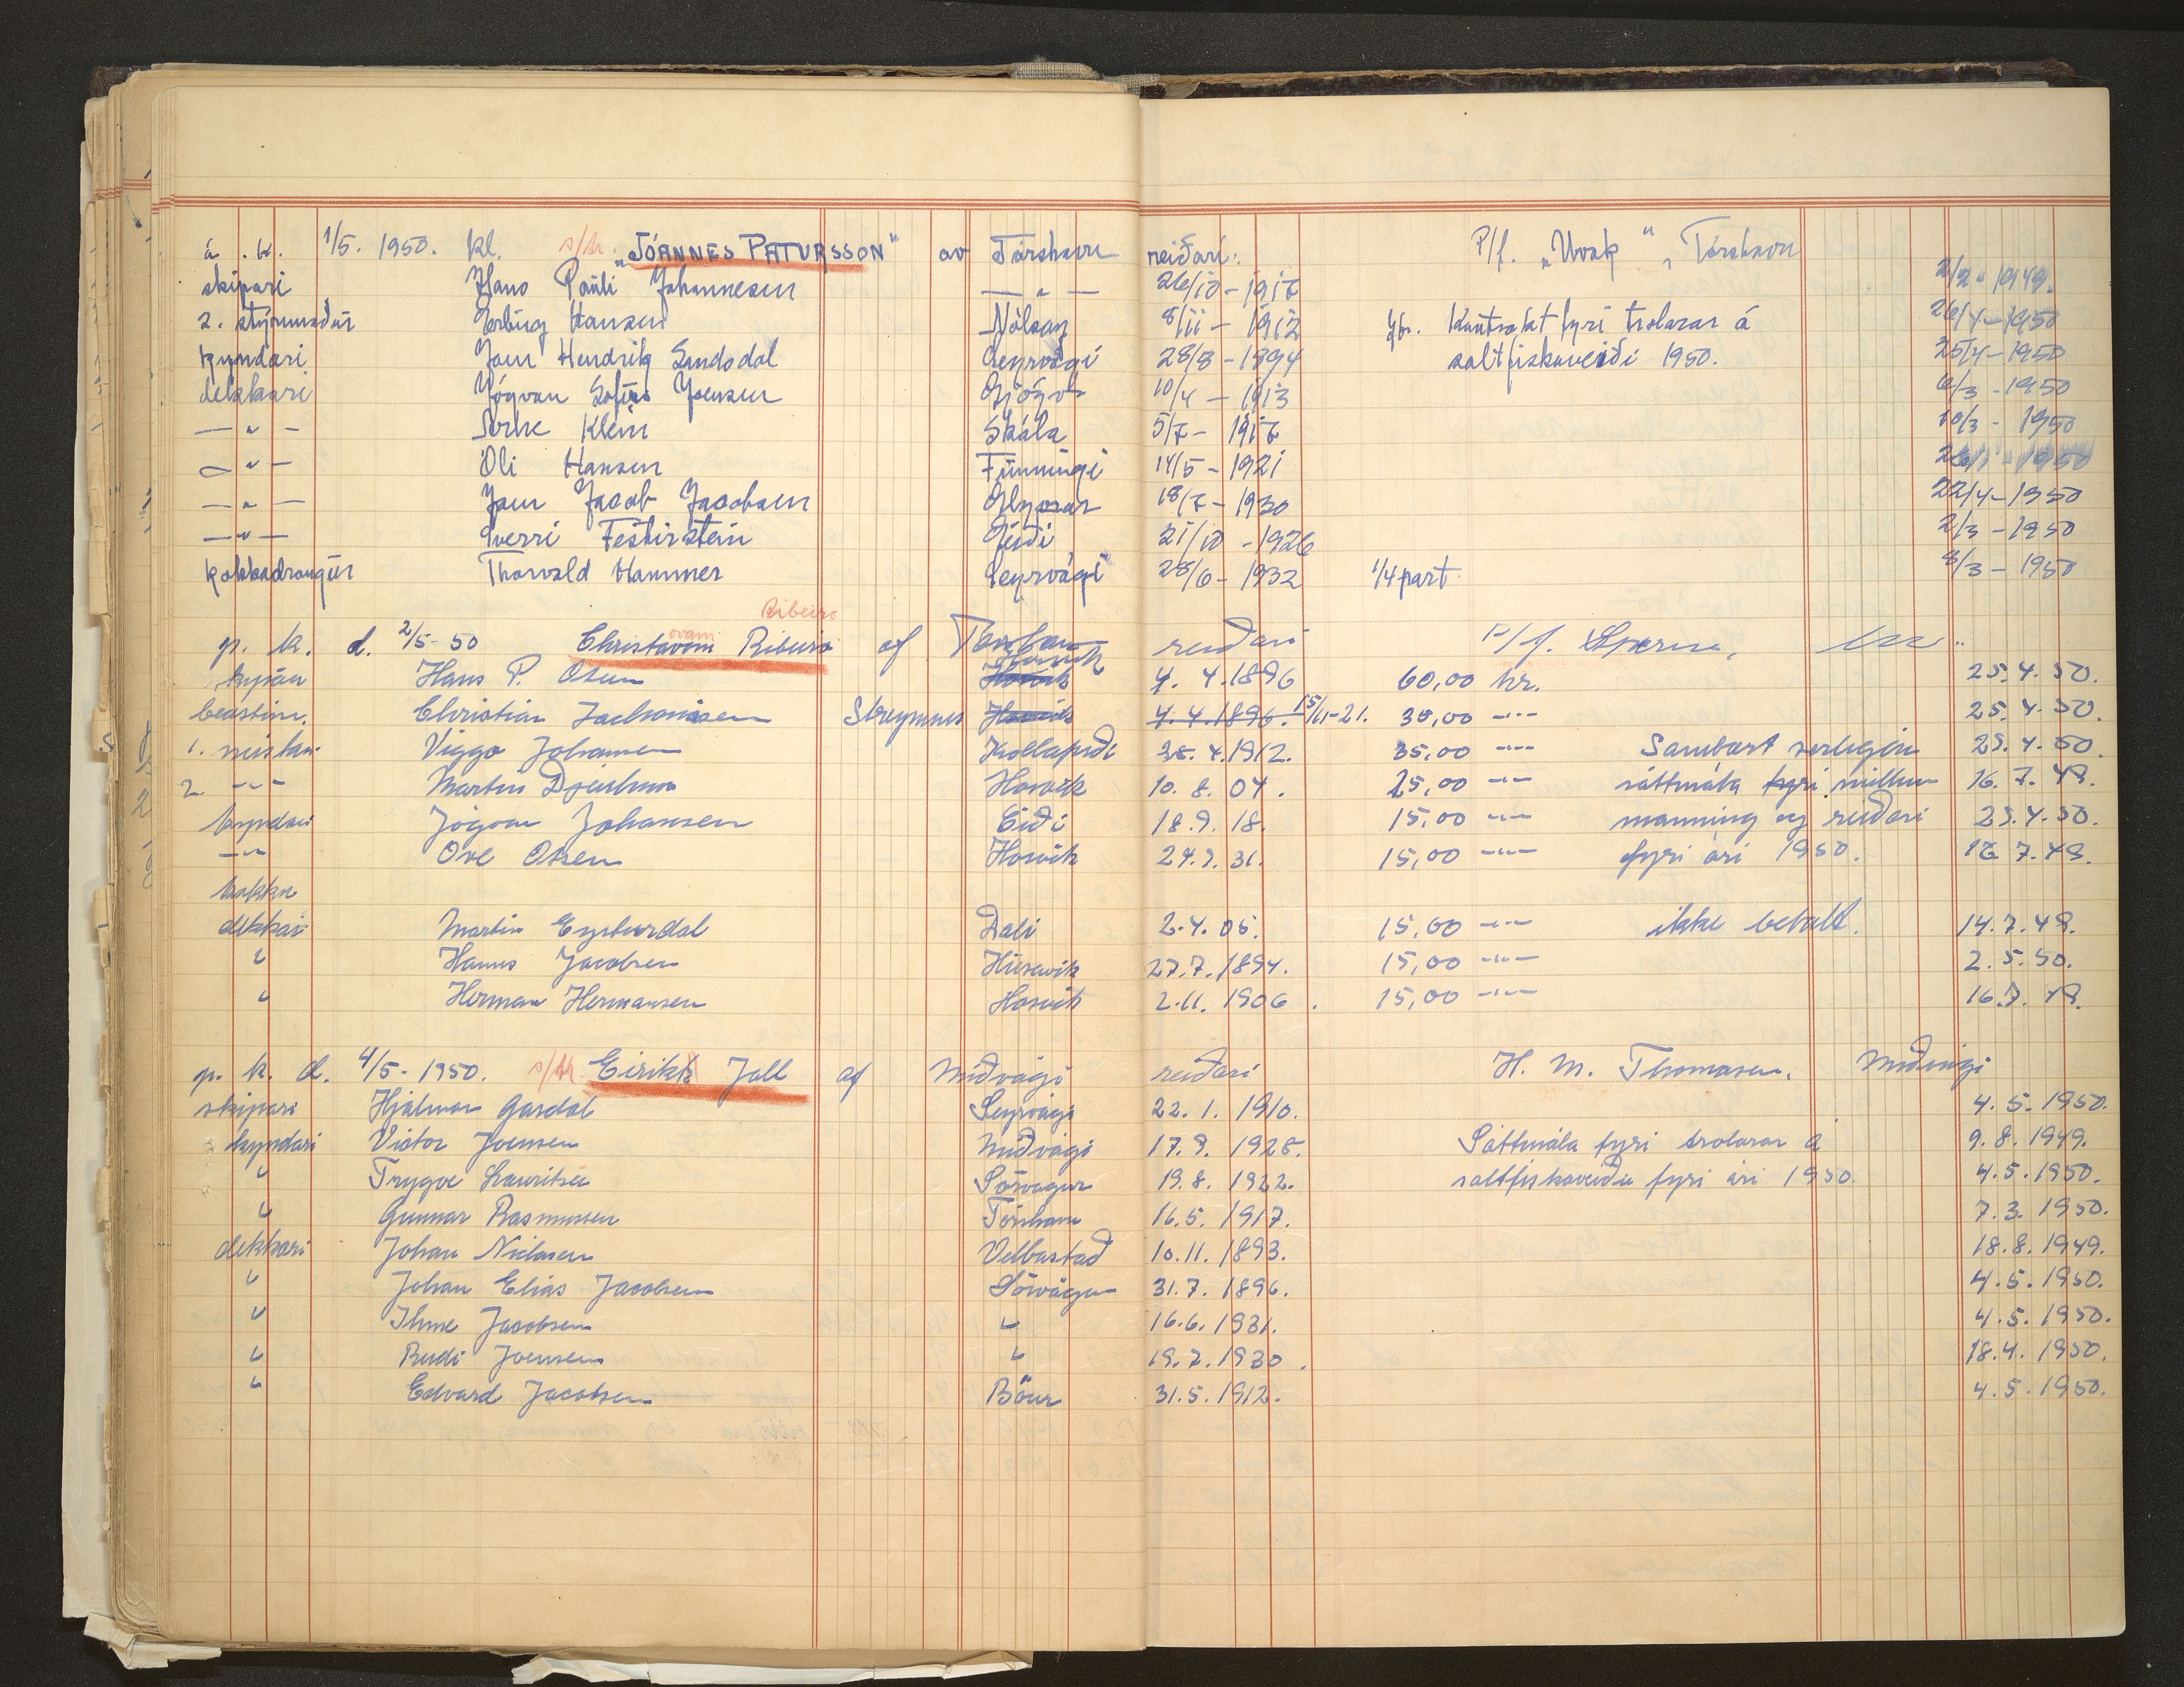 á . k. 1/5. 1950. kl. s/tr. „JÓANNES PATURSSON“ av Tórshavn reiðari: P/f. „Uvak“, Tórshavn
skipari Hans Pauli Johannesen —„— 26/10 - 1917 2/2 - 1949.
2. stýrimaður Erling Hansen Nólsoy 8/11 - 1912 Kontrakt fyri trolarar á 26/4 - 1950
kyndari Joen Hendrik Sandsdal Seyrvági 28/8 - 1894 saltfiskaveiði 1950. 25/4 - 1950
dekkari Jógvan Sofus Joensen Gjógv 10/4 - 1913 6/3 - 1950
—„— Klein Skála 5/7 - 1917 10/3 - 1950
—„— Óli Hansen Funningi 14/5 - 1921
—„— Joen Jacob Jacobsen Glyvrar 18/7 - 1930 22/4 - 1950
—„— Sverri Festirstein Eiði 21/10 - 1926 2/3 - 1950
kokkadrongur Thorvald Hammer Seyrvági 28/6 - 1932 1/4 part. 8/3 - 1950
Ribeiro
p. k. d. 2/5 - 50 Christavam ovam Ribeiro af Torshavn reiðari P/f.
Hans P. Olsen Hosvík 4. 4. 1896 60,00 kr. 25. 4. 50.
bestim. Christian Zachariasen Streymnes Hosvík 4. 4. 1896. 15/11-21. 30,00 -"- 25. 4. 50.
1. meistari Viggo Johansen Kollafirði 4. 1912. 35,00 -"- Sambært serligin 25. 4. 50.
2. -"- Martin Djurhuus Hosvík 10. 8. 04. 25,00 -"- sáttmála fyri millum 16. 7. 49.
kyndari Jógvan Johansen Eiði 18. 9. 18. 15,00 -"- manning og reiðari 25. 4. 50.
-"- Ove Olsen Hosvík 24. 9. 31. 15,00 -"- fyri ári 1950. 16. 7. 49.
kokku
dekkari Martin Eysturdal Dali 2. 4. 05. 15,00 -"- ikke betalt. 14. 7. 49.
" Hanus Jacobsen Húsavík 27. 7. 1894. 15,00 -"- 2. 5. 50.
" Herman Hermansen Hosvík 2. 11. 1906. 15,00 -"- 16. 7. 49.
p. k. d. 4/5 - 1950. s/tr Eirikk Jall af Miðvági reiðari H. M. Thomasen, Miðvági
skipari Hjalmar Gardal Seyrvági 22. 1. 1910. 4. 5. 1950.
kyndari Victor Joensen Miðvági 17. 9. 1925. Sáttmála fyri trolarar á 9. 8. 1949.
" Trygve Lauritsen Sörvagur 19. 8. 1922. saltfiskaveiðu fyri ári 1950. 4. 5. 1950.
" Gunnar Rasmussen Tórshavn 16. 5. 1917. 7. 3. 1950.
dekkari Johan Niclasen Velbastað 10. 11. 1893. 18. 8. 1949.
" Johan Elias Jacobsen Sörvágur 31. 7. 1896. 4. 5. 1950.
" Jacobsen " 16. 6. 1931. 4. 5. 1950.
" Rudi Joensen " 19. 7. 1930. 18. 4. 1950.
" Edvard Jacobsen Böur 31. 5. 1912. 4. 5. 1950.